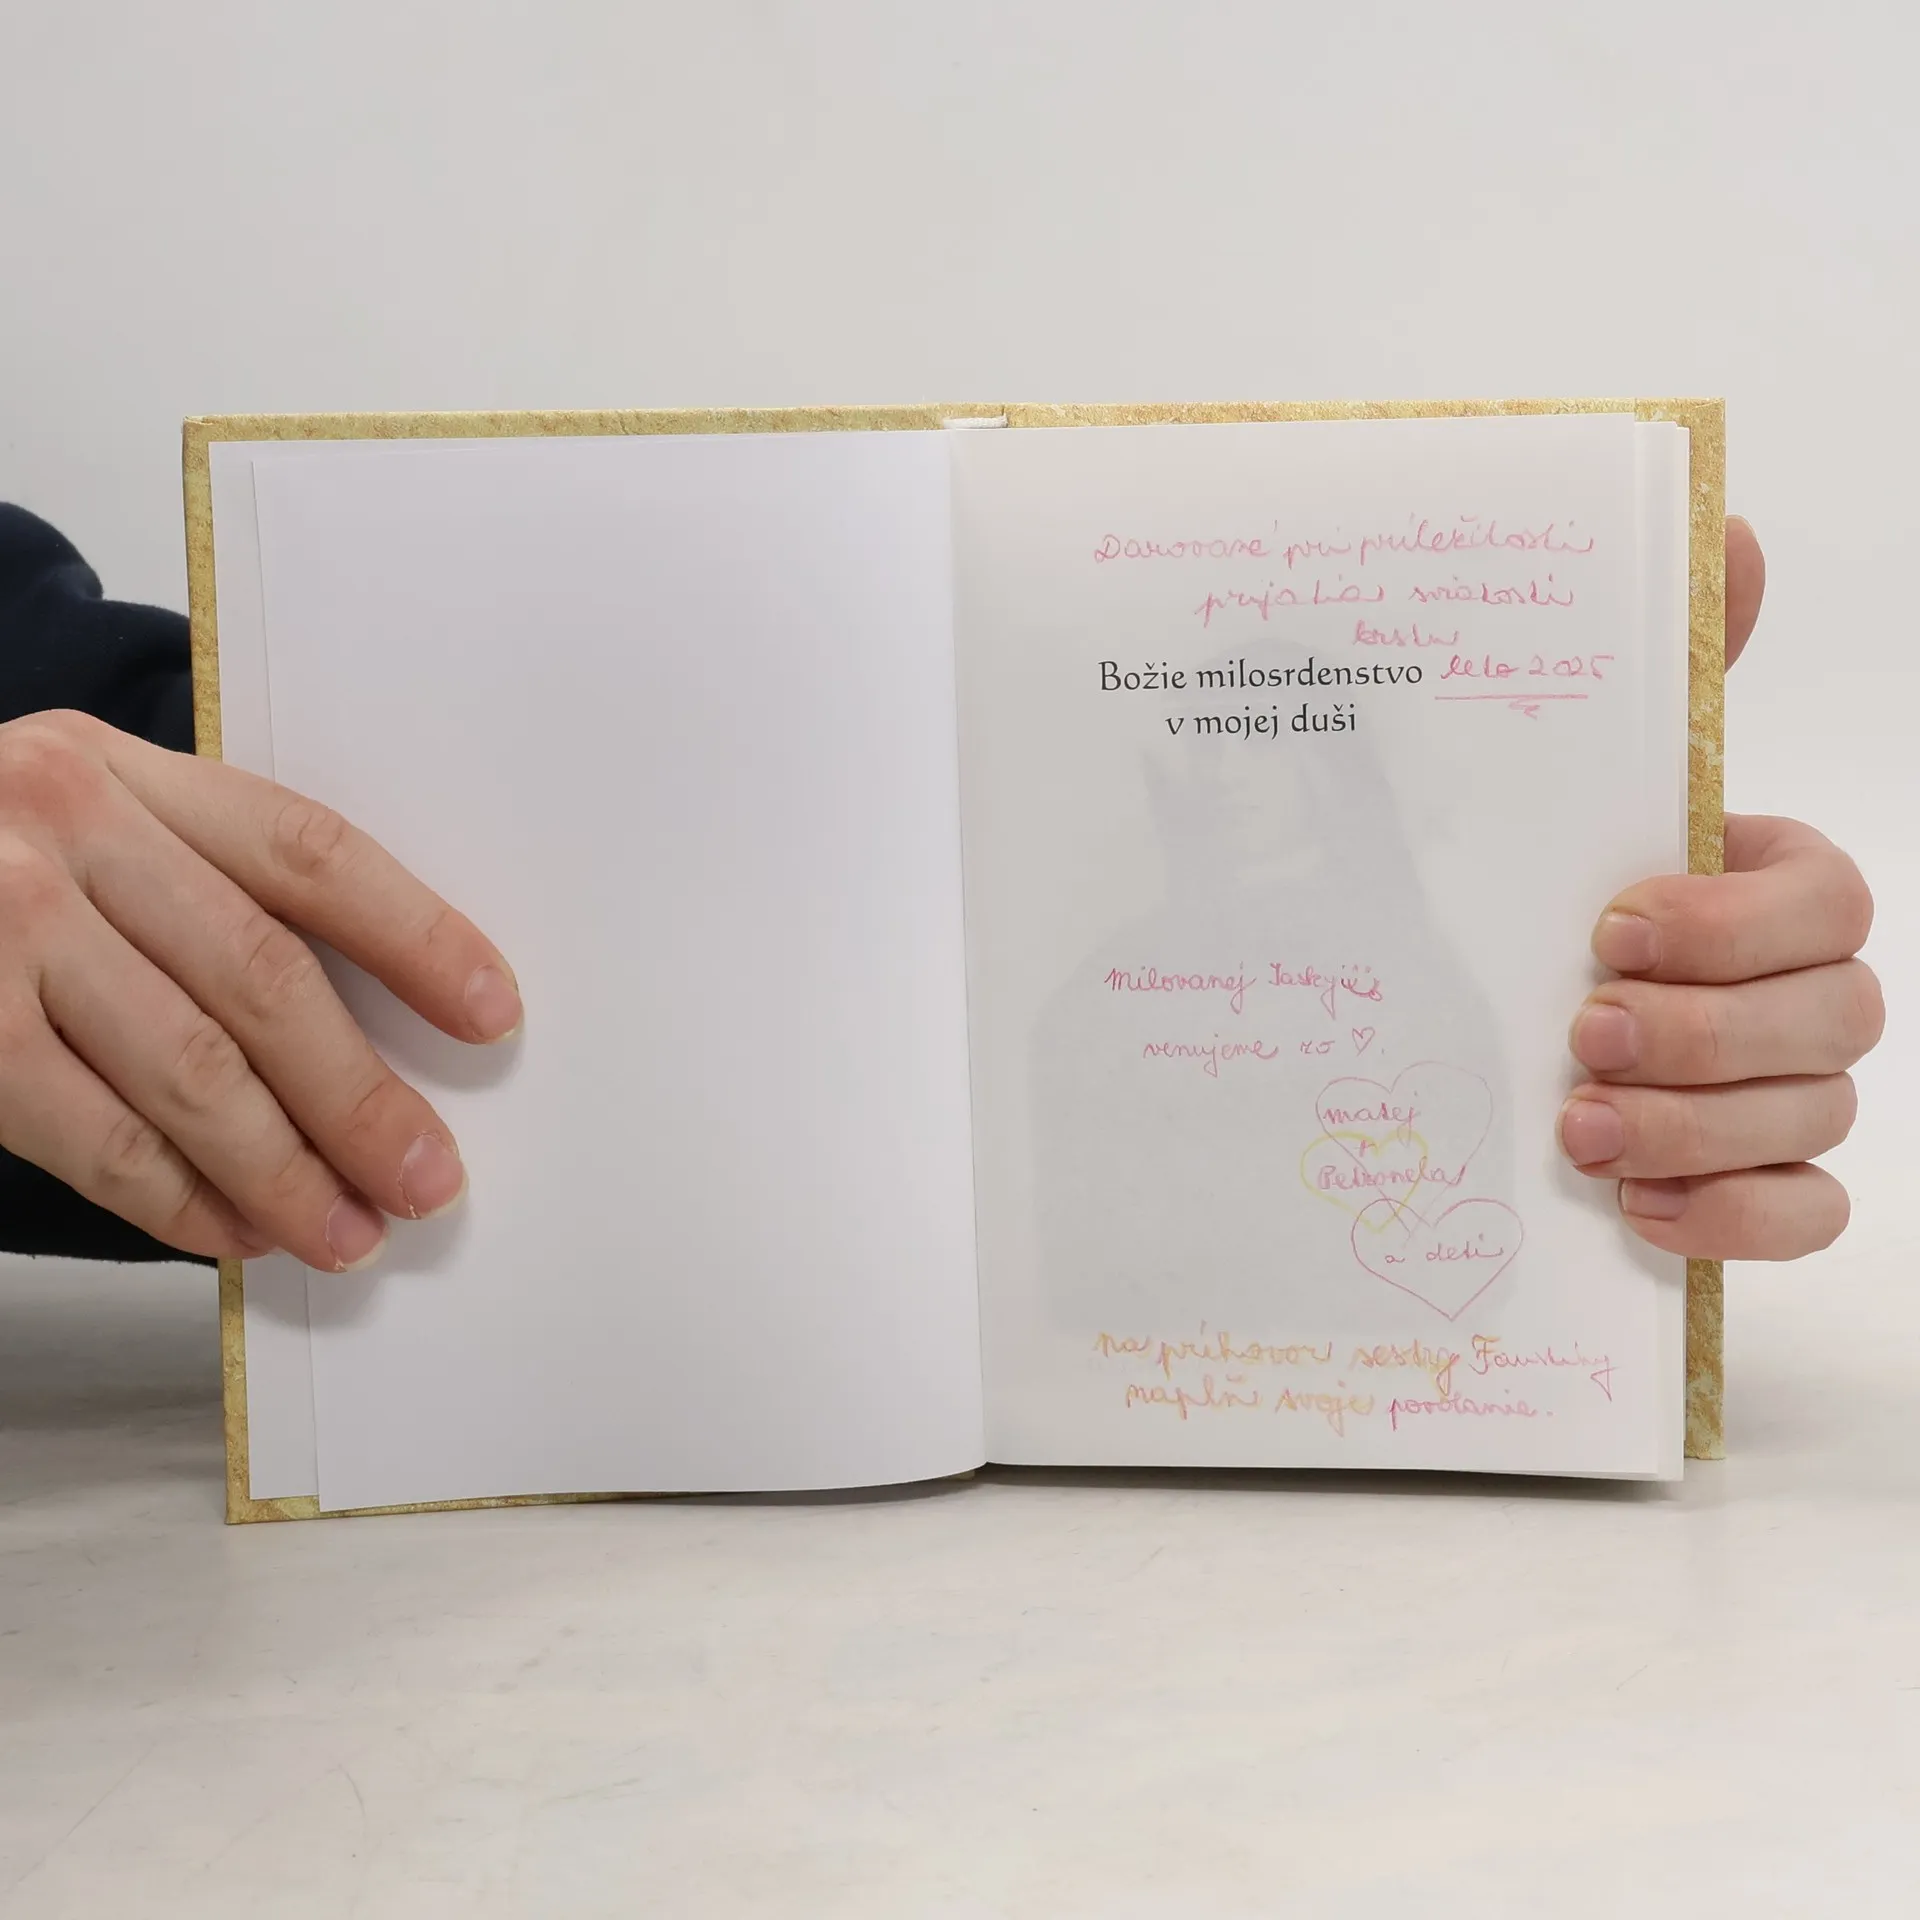 Darované pri príležitosti
prijatia sviatosti
krstu
Božie milosrdenstvo leto 2025
v mojej duši
Milovanej
venujeme zo ♡.
Matej
+
Petronela
a deti
Na príhovor sestry Faustíny
naplň svoje povolanie.